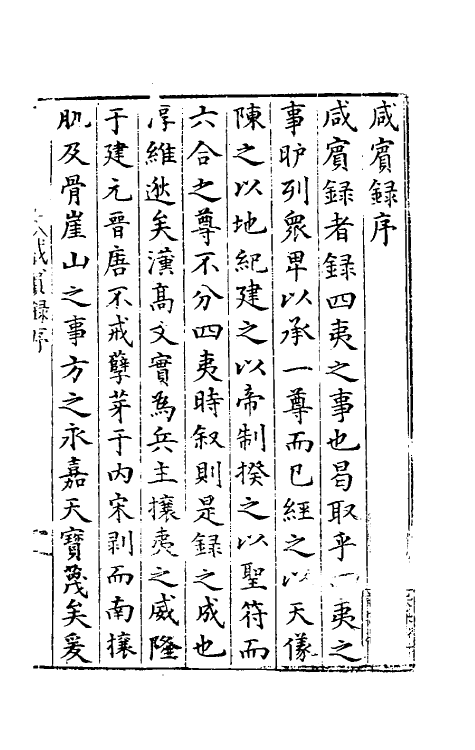 咸賓録序
咸賓録者録四夷之事也曷取乎四夷之
事昈列衆卑以承一尊而已經之以天儀
陳之以地紀建之以帝制揆之以聖符而
六合之尊不分四夷時叙則是録之成也
淳維逖矣漢髙文實為兵主攘夷之威隆
于建元晉唐不戒孽芽于内宋剥而南攘
肌及骨崖山之事方之永嘉天寶蔑矣爰
咸賓録序
一